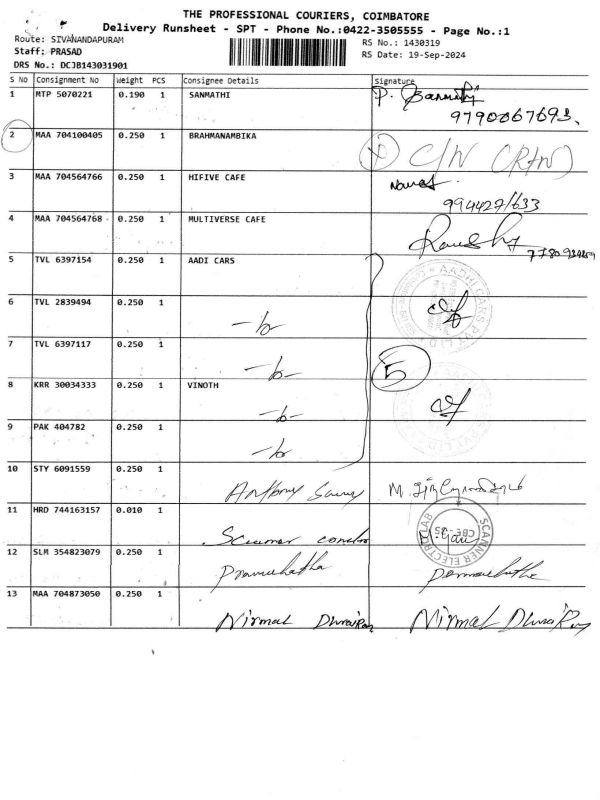 THE PROFESSIONAL COURIERS, COIMBATORE
Delivery Runsheet - SPT - Phone No.:0422-3505555 - Page No.:1
Route: SIVANANDAPURAM
RS No.: 1430319
Staff: PRASAD
RS Date: 19-Sep-2024
DRS No.: DCJB143031901
S NO Consignment No Weight PCS Consignee Details Signature
1 MTP 5070221 0.190 1 SANMATHI P. Sanmathi
9790067693.
2 MAA 704100405 0.250 1 BRAHMANAMBIKA C/N (RTN)
3 MAA 704564766 0.250 1 HIFIVE CAFE
994427/633
4 MAA 704564768 0.250 1 MULTIVERSE CAFE
5 TVL 6397154 0.250 1 AADI CARS
AADHI CARS PVT LTD
6 TVL 2839494 0.250 1
7 TVL 6397117 0.250 1
5
8 KRR 30034333 0.250 1 VINOTH
9 PAK 404782 0.250 1
10 STY 6091559 0.250 1
Anthony
11 HRD 744163157 0.010 1
SCANNER ELECTRO LAB
CBE
12 SLM 354823079 0.250 1
13 MAA 704873050 0.250 1
Nirmal Dhurai Raj Nirmal Dhurai Raj